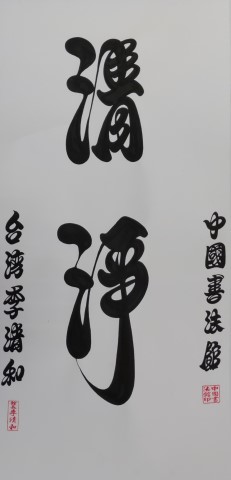 中國書法館
清淨
台湾李清和